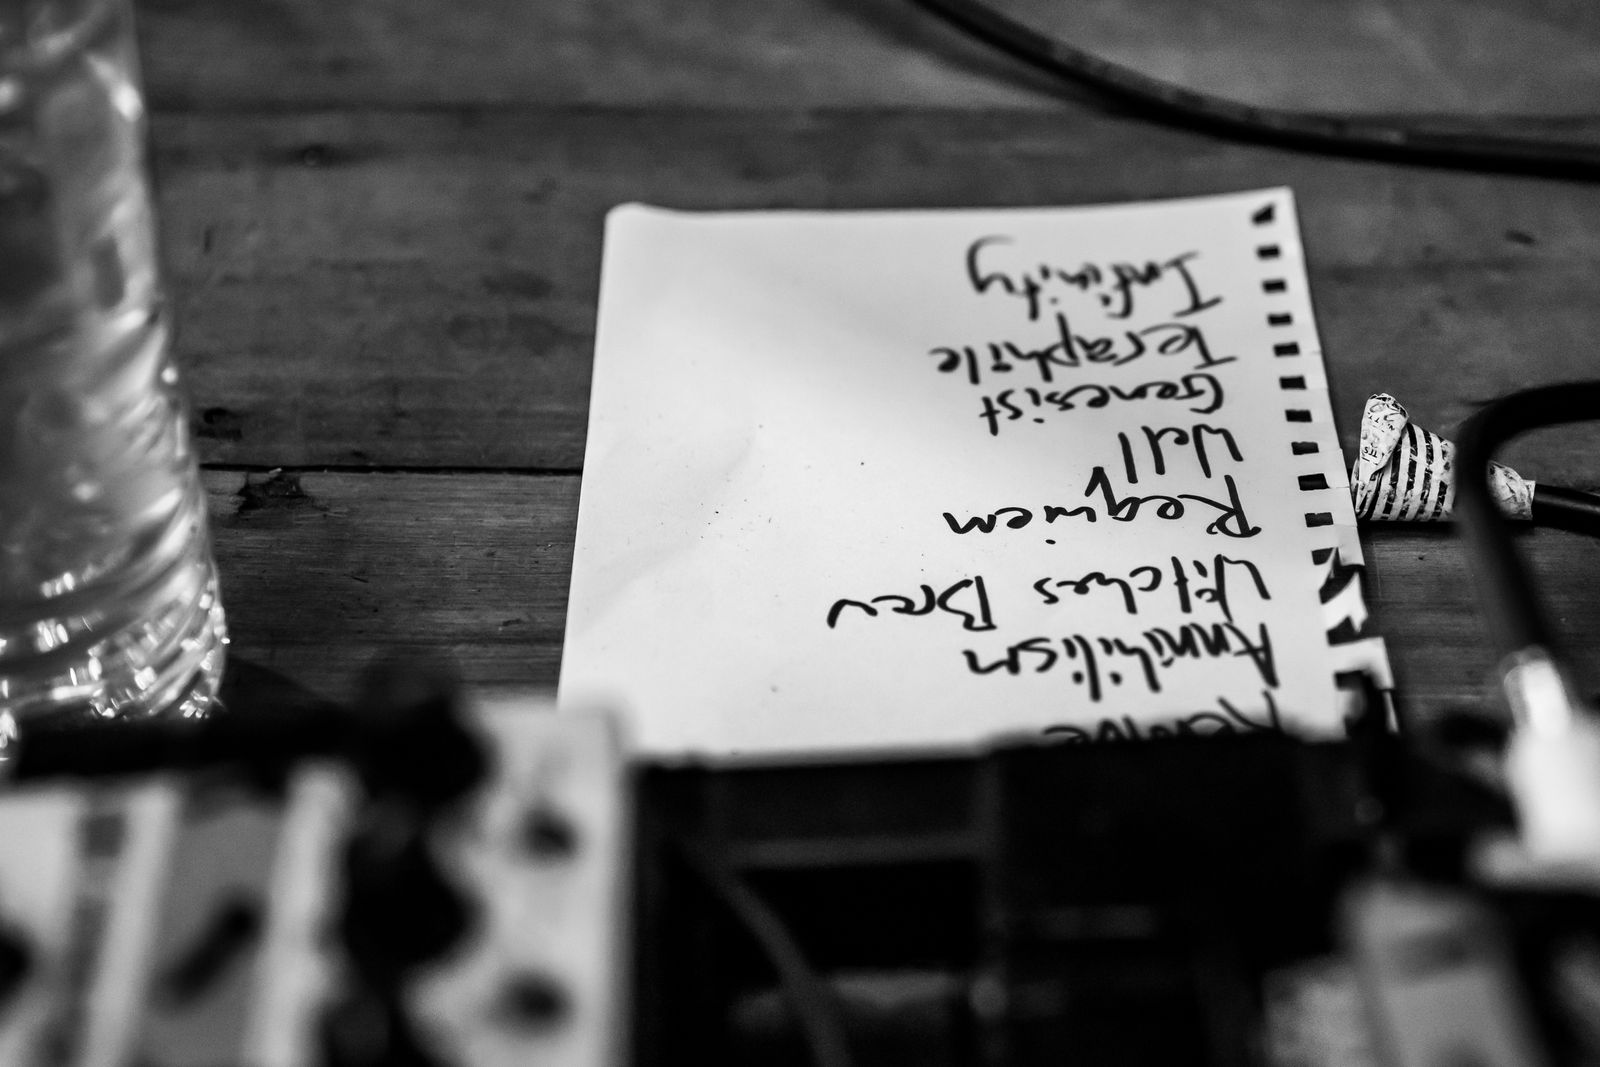 Annihilism
Witches Brew
Requiem
Well
Genesist
Teraphile
Infinity